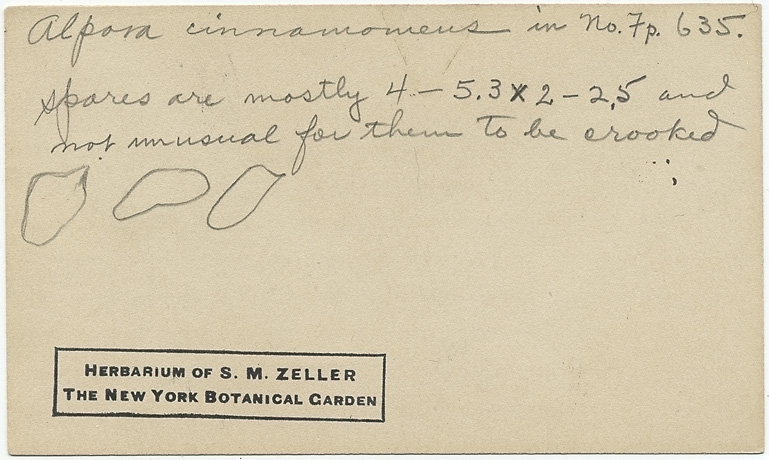 Alpova cinnamomeus in No. Fp. 635.
spores are mostly 4 – 5.3 x 2 – 2.5 and
not unusual for them to be crooked
HERBARIUM OF S. M. ZELLER
THE NEW YORK BOTANICAL GARDEN